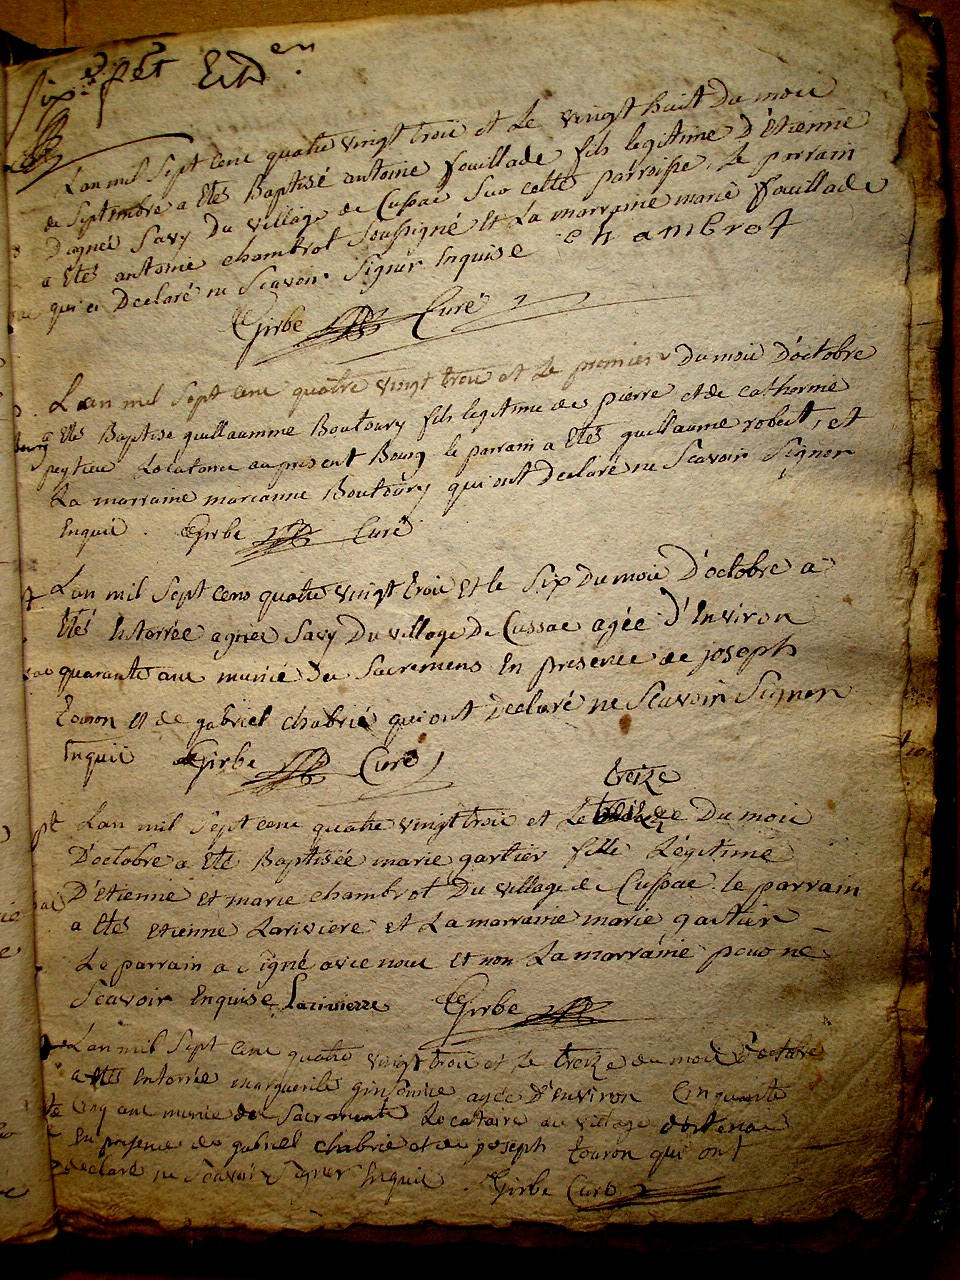 Six. Sept
L'an mil Sept cens quatre vingt trois et Le vingt huit Du mois
de Septembre a Etés Baptisé antoine fouillade fils legitime D'Etienne
D'agnés Savy Du village de Cussac Sur cette parroisse, Le parrain
a Etés antoine chambrot soussigné Et La marraine marie fouillade
qui a Declaré ne Scavoir Signer Enquise chambrot
Girbe Curé
L'an mil Sept cens quatre vingt trois et Le premier Du mois D'octobre
a Etés Baptisé guillaumme Boutoury fils legitime de pierre et de catherine
peytieu Locatane au present Bourg le parrain a Etés guillaume robert, et
La marraine marianne Boutoury qui ont Declaré ne Scavoir Signer
Enquis. Girbe Curé
L'an mil Sept cens quatre vingt trois Et le Six Du mois D'octobre a
Etés Enterrée agnés Savy Du village De Cussac agée D'Environ
quarante ans munie des Sacremens En presence de joseph
Touron et de gabriel chabrié qui ont Declaré ne Scavoir Signer
Enquis Girbe Curé
treize
L'an mil Sept cens quatre vingt trois et Le Du mois
D'octobre a Eté Baptisée marie gartier fille Légitime
D'Etienne et marie chambrot Du village de Cussac. le parrain
a Etés etienne Lariviere et La marraine marie gartier
Le parrain a signé avec nous et non La marraine pour ne
Scavoir Enquise Larivierre Girbe
L'an mil Sept cens quatre vingt trois et Le treize du mois D'octobre
a Etés Enterrée marguerite agée D'Environ Cinquante
Cinq ans munie des Sacrements Locataire au village
En presence de gabriel chabrié et de joseph touron qui ont
declaré ne Scavoir Signer Enquis. Girbe Curé